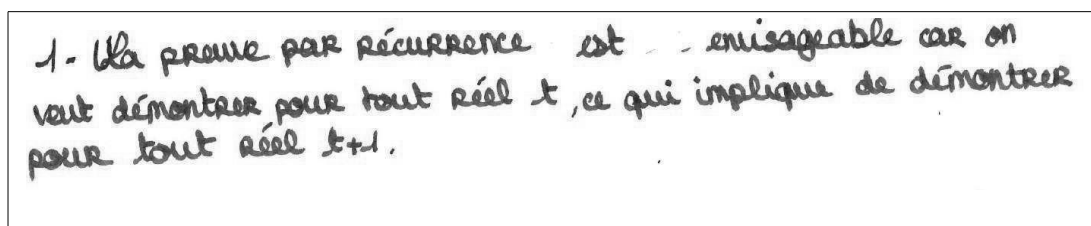 1- La preuve par récurrence est envisageable car on
veut démontrer pour tout réel t, ce qui implique de démontrer
pour tout réel t+1.